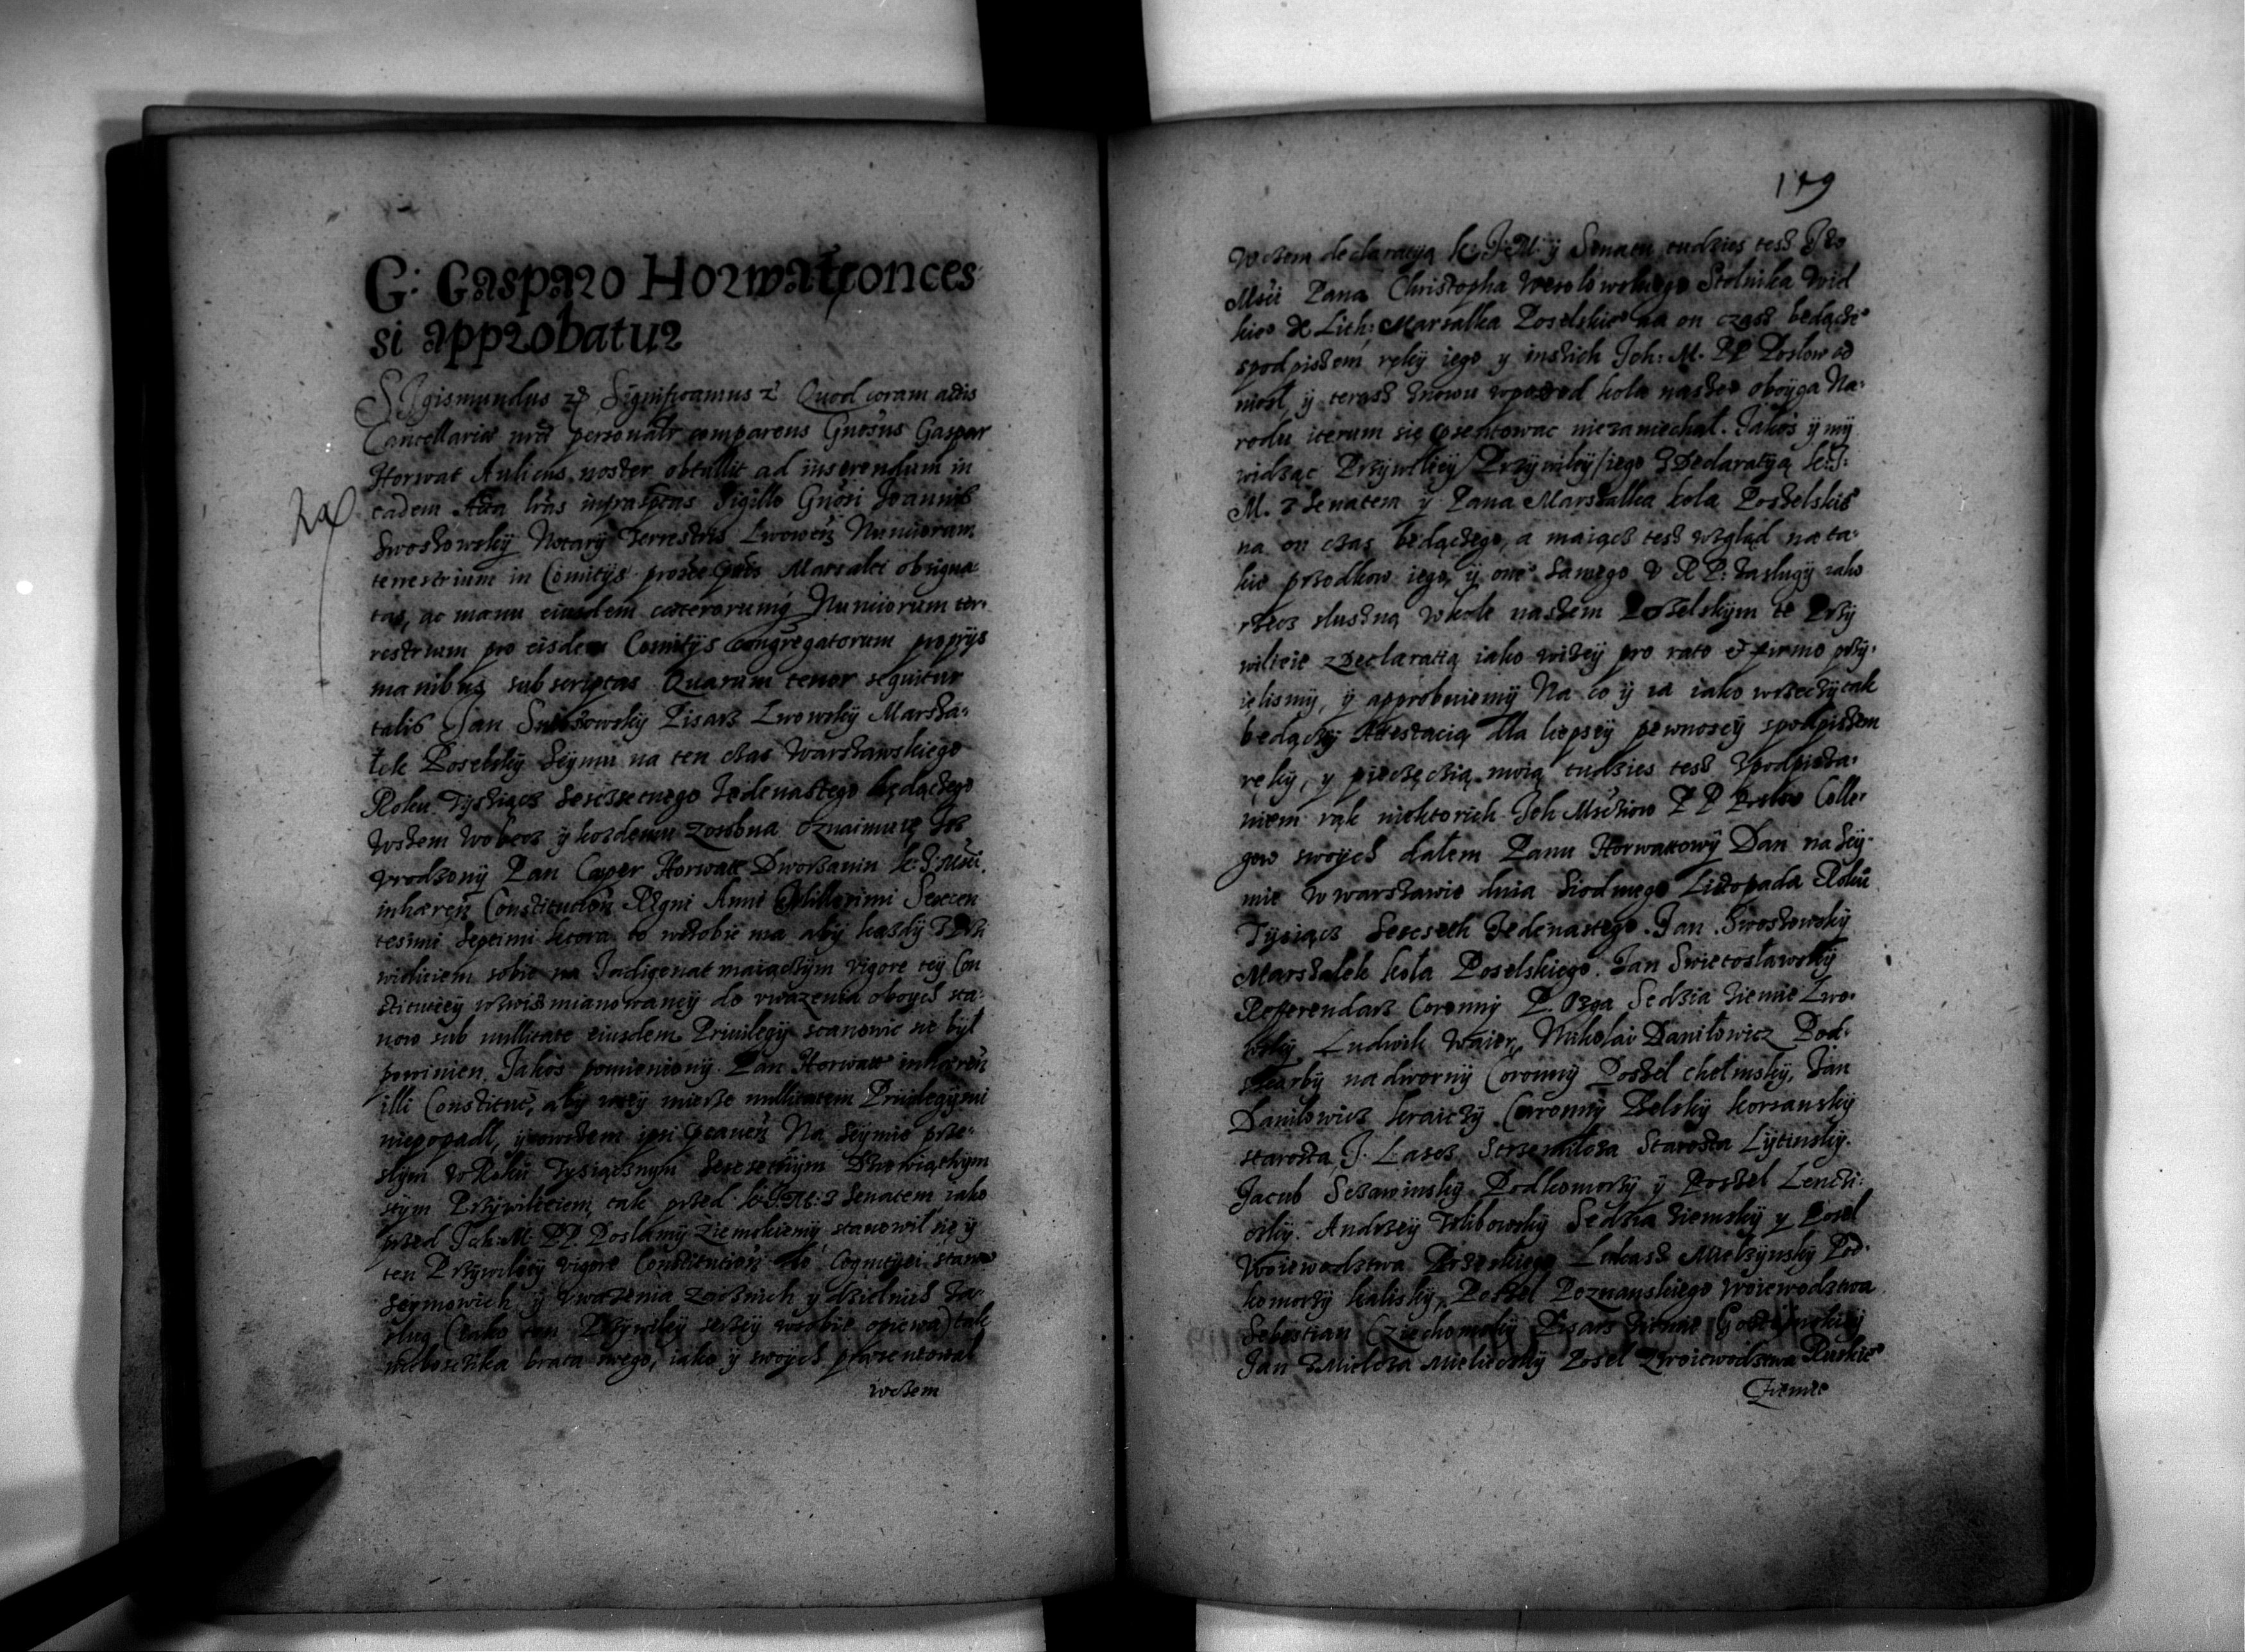 G: Gasparo Horwat conces
si approbatur
Sigismundus Significamus Quod coram actis
Cancellariae personaliter comparens Gnosus Gaspar
Horwat Aulicus noster obtullit ad inserendum in
eadem Acta lras infrascptas Sigillo Gnosi Joannis
Swoszowsky Notary Terrestris Nunciorum
terrestrium in Comitys Marsalci obsigna-
tas, ac manu eiusdem caeterorumq Nunciorum ter-
restrium pro eisdem Comitys congregatorum proprys
manibus subscriptas Quarum tenor sequitur
talis Jan Swoszowsky Pisarz Lwowsky Marsza-
łek Poselsky Seymu na ten czas Warszawskiego
Roku Tysziącz Seszsetnego Jedenastego będączego
Wszem wobecz y kozdemu zosobna oznaimuię Jsz
Vrodzony Pan Casper Horwatt Dworzanin
inhaeren Constitution Regni Anni Millesimi Sexcen
tesimi Septimi ktora to wsobie ma aby kazdy
wileiem sobie na Indigenat maiączym vigore tey Con
stituciey wzwisz mianowaney do vwazenia oboych sta-
now sub nullitate eiusdem Priuilegy stanowic się był
powinien. Jakos pomieniony Pan Horwatt inhaeren
illi Constituc, aby wtey mierze nullitatem Priuilegymi
niepopadł, Na Seymie prze-
słym w Roku Tysiącznym Szescsetnym Dziewiąthym
stym Przywileiem tak przed Senatem iako
przed Ich: M: PP. Posłamy Ziemskiemy stanowił się y
ten Przywiley vigore Constitution do Cognitiei stanow
Seymowich y vwazenia y dzielnich Za-
slug (iako ten Przywiley wsobie opiewa) tak
nieboscika brata swego, iako y swoych praesentował
wczem
179
Wczem declaratyą K: J: M: y Senatu tudzies tesz Jego
Msci Pana Christopha Wesolowskiego Stolnika Wiel
kiego X Lith: Marsalka Poselskiego na on czasz będączego
spodpiszem ręky iego y inszich Jch: M. PP Posłow od
niosł, y terasz znowu wposrod kola naszego oboyga Na-
rodu iterum się praesentowac niezaniechał. Jakos y my
widząc Przywiley iego z Declaratyą K: J:
M. z Senatem y Pana Marszalka kola Poszelskiego
na on czas będączego, a maiącz tesz wzgląd na ta-
kie przodkow iego, y onego Samego v RP: zaslugy iako
rzecz sluszną w kole naszem Poszelskym te Przy
wileie z Declaratią iako wizey pro rato et firmo przy-
ięlismy, y approbuiemy Na co y ia iako
będączy Attestacią dla liepszey pewnoscy spodpiszem
ręky, y pieczęczią moią tudzies tesz
niem rąk niektorich Jch Mscziow PP Posłow Colle-
gow swoych dałem Panu Horwattowy Dan na Sey-
mie w warszawie dnia Siodmego Listopada Roku
Tysiącz Szescseth Jedenastego. Jan Swoszowsky
Marszalek koła Poselskiego. Jan Swietosławsky
Refferendarz Coronny P. Ozga Sedzia ziemie Lwo-
wsky Ludwik Waier, Mikolai Daniłowicz Pod-
skarby nadworny Coronny Poszel chełmsky, Jan
Danilowicz kraiczy Coronny Belsky korsunsky
starosta, J. Lascz Strzemilcza Starosta Lytinsky.
Jacub Sczawinsky Podkomorzy y Poszel Lenczi-
czky. Andrzey Sedzia ziemsky y Posel
Woiewodztwa Lukasz Mielzynsky Pod-
komorzy kalisky, Poszel Poznanskiego Woiewodztwa
Sebestian Pisarz ziemie
Jan z Mielcza Mieliecsky Posel z woiewodztwa Ruskiego
Ziemie